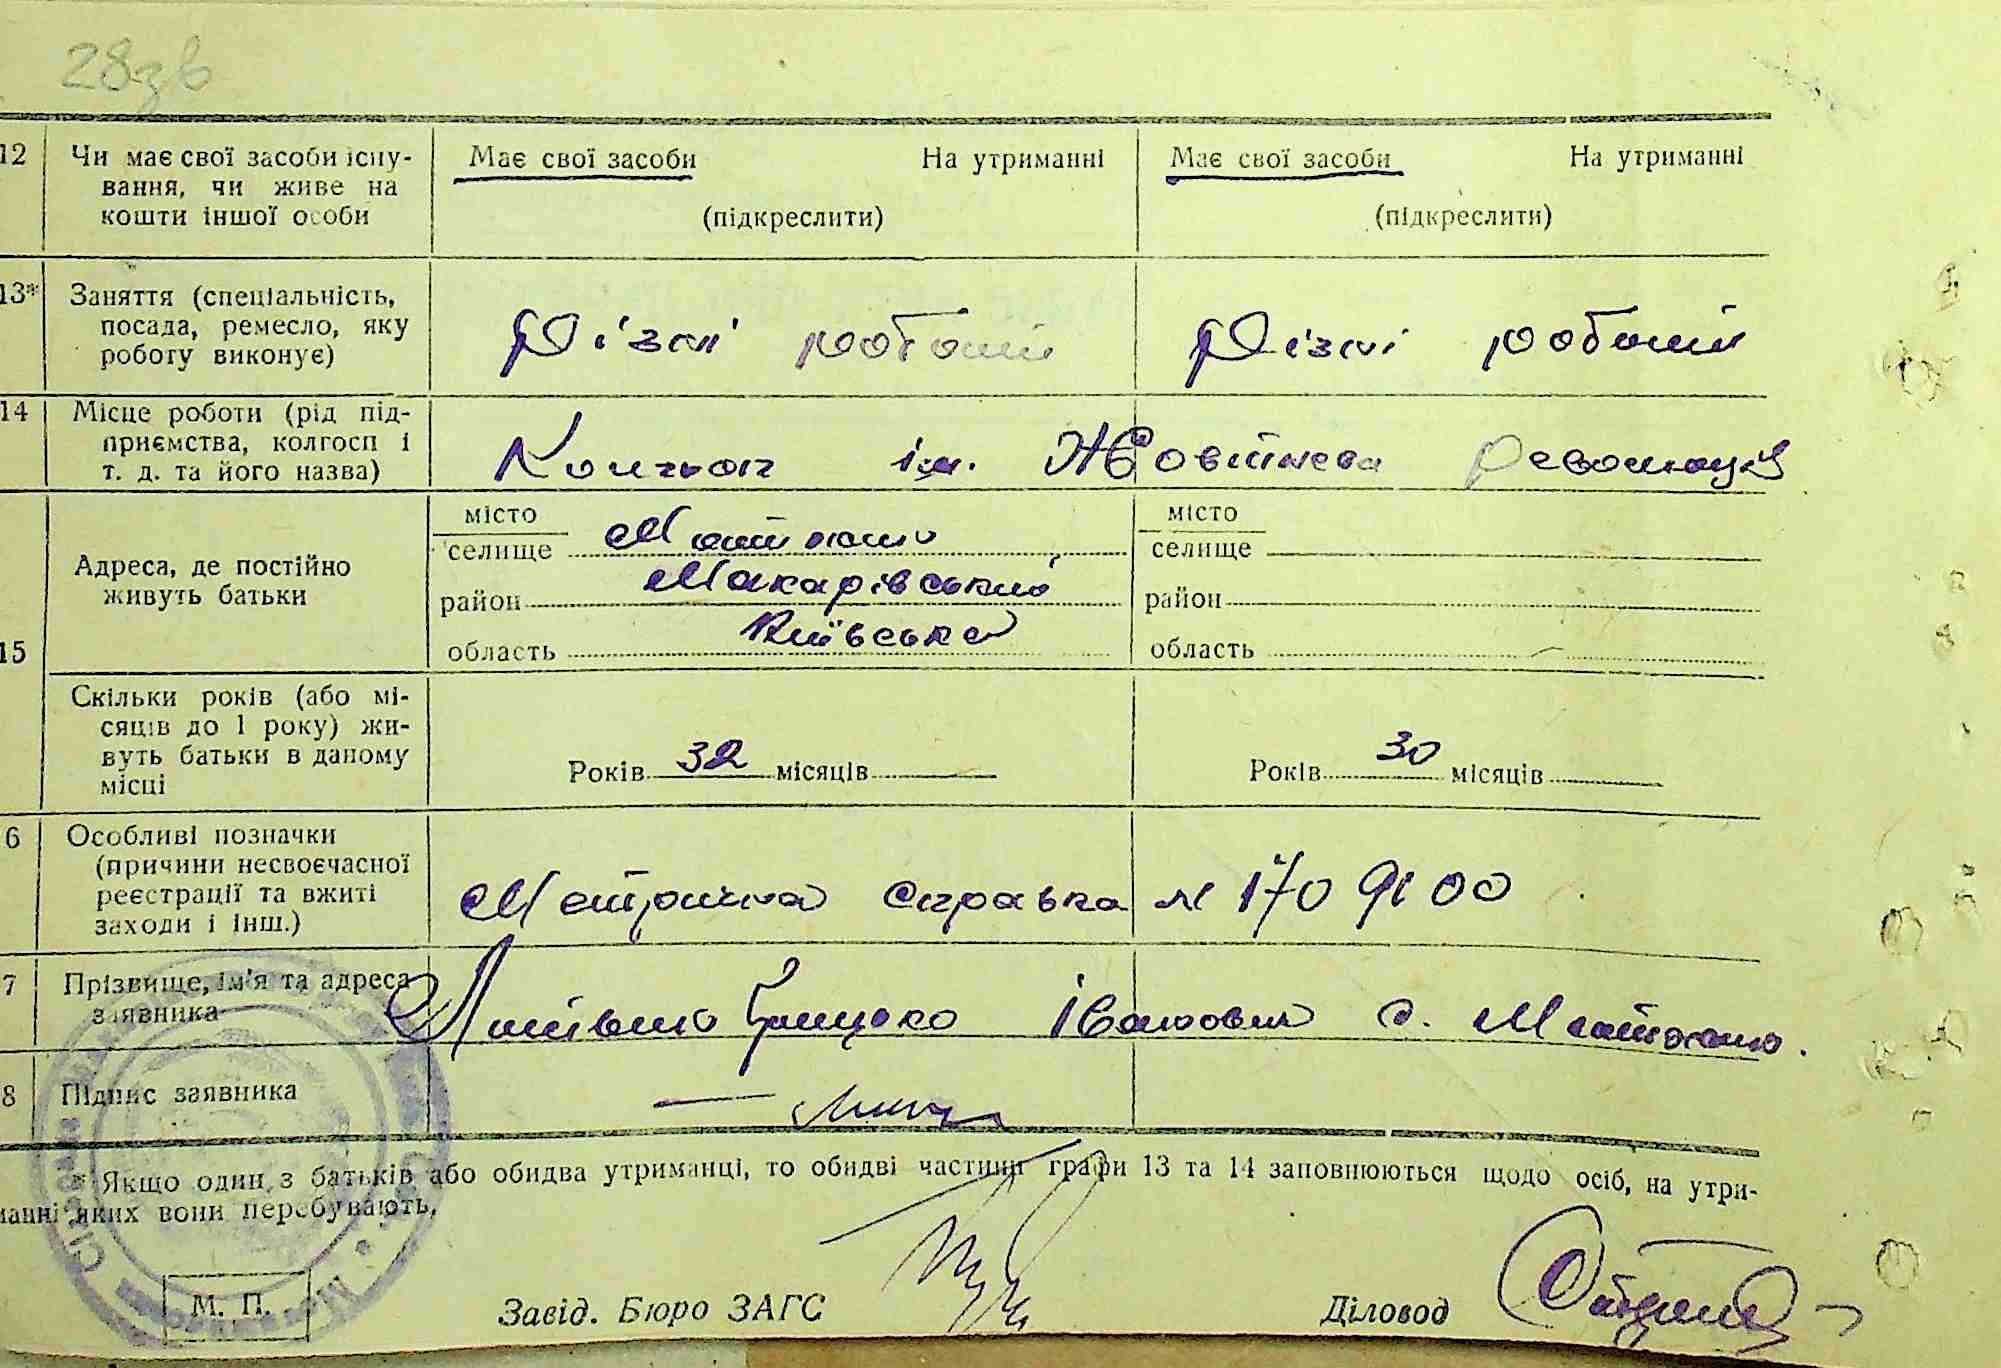 28зв
12 Чи має свої засоби існу-
вання, чи живе на
кошти іншої особи
Має свої засоби На утриманні
(підкреслити)
Має свої засоби На утриманні
(підкреслити)
13* Заняття (спеціальність,
посада, ремесло, яку
роботу виконує)
Різні роботи
Різні роботи
14 Місце роботи (рід під-
приємства, колгосп і
т. д. та його назва)
Колгосп ім. Жовтнева революція
15 Адреса, де постійно
живуть батьки
місто
селище
район Макарівський
область Київська
місто
селище
район
область
Скільки років (або мі-
сяців до 1 року) жи-
вуть батьки в даному
місці
Років 32 місяців
Років 30 місяців
6 Особливі позначки
(причини несвоєчасної
реєстрації та вжиті
заходи і інш.)
Метрична справка № 170 91 00
7 Прізвище, ім'я та адреса
заявника
Грицько Іванович с.
8 Підпис заявника
* Якщо один з батьків або обидва утриманці, то обидві частини графи 13 та 14 заповнюються щодо осіб, на утри-
манні яких вони перебувають.
М. П.
Завід. Бюро ЗАГС
Діловод